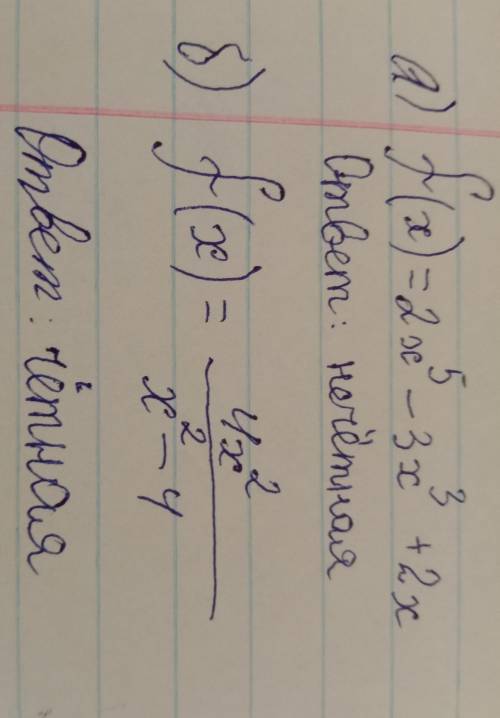 а) f(x) = 2x⁵ - 3x³ + 2x
Ответ: нечётная
б) f(x) = 4x² / x² - 4
Ответ: чётная